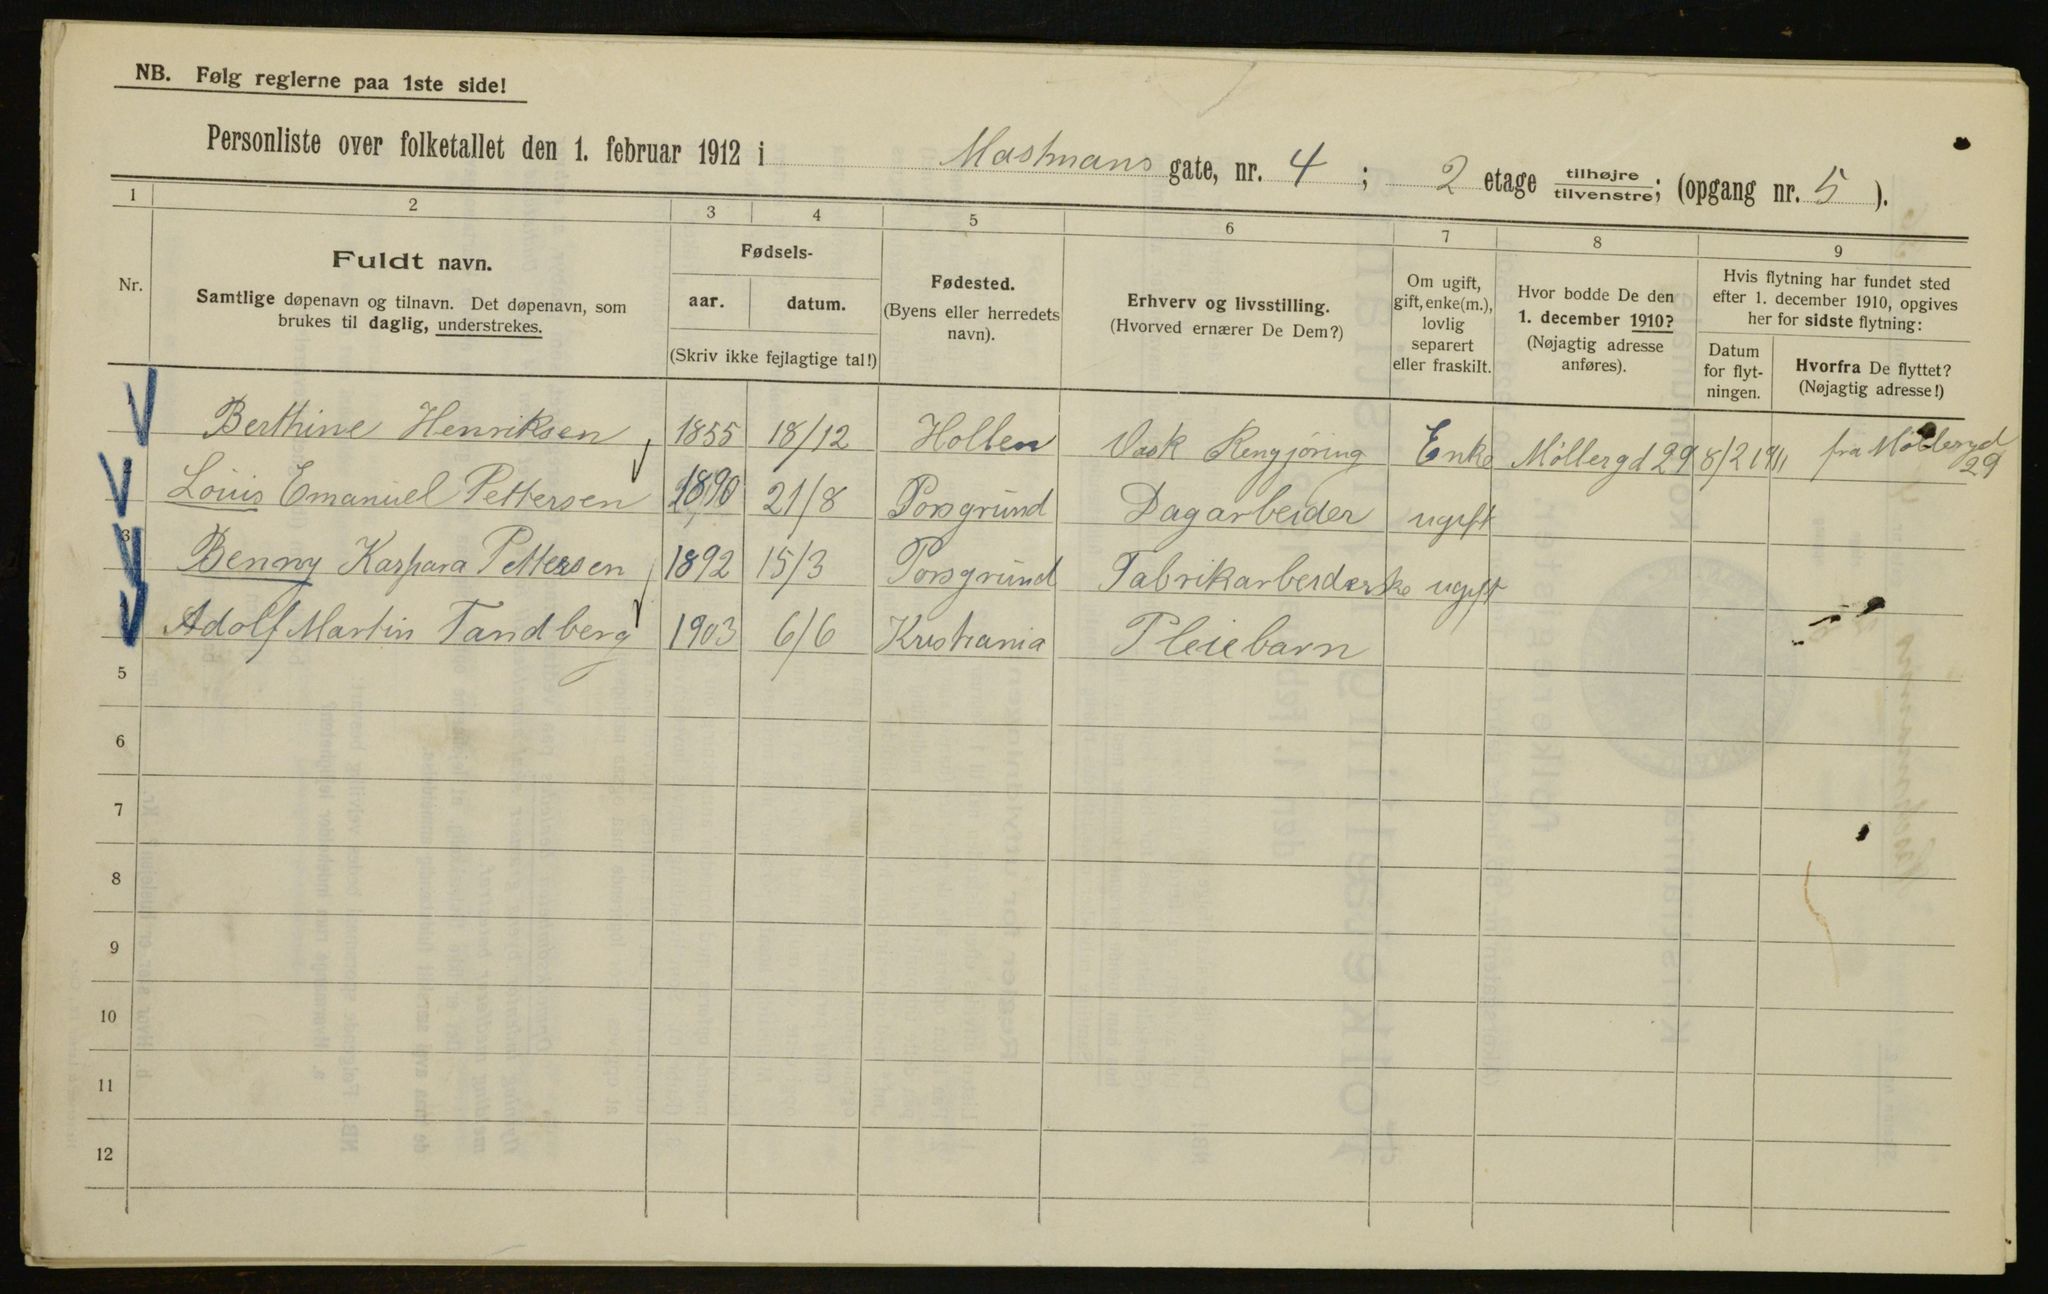 NB. Følg reglerne paa 1ste side!
Personliste over folketallet den 1. februar 1912 i Mastmans gate, nr. 4 ; 2 etage tilhøjre/tilvenstre; (opgang nr. 5 ).
1 2 3 4 5 6 7 8 9
Nr.
Fuldt navn.
Samtlige døpenavn og tilnavn. Det døpenavn, som
brukes til daglig, understrekes.
Fødsels-
aar. datum.
(Skriv ikke fejlagtige tal!)
Fødested.
(Byens eller herredets
navn).
Erhverv og livsstilling.
(Hvorved ernærer De Dem?)
Om ugift,
gift, enke(m.),
lovlig
separert
eller fraskilt.
Hvor bodde De den
1. december 1910?
(Nøjagtig adresse
anføres).
Hvis flytning har fundet sted
efter 1. december 1910, opgives
her for sidste flytning:
Datum
for flyt-
ningen.
Hvorfra De flyttet?
(Nøjagtig adresse!)
Berthine Henriksen 1855 18/12 Hollen Vask Rengjøring Enke Møllergd 29 8/2 1911 fra Møllergd 29
Louis Emanuel Pettersen 1890 21/8 Porsgrund Dagarbeider ugift
3 Benny Kaspara Pettersen 1892 15/3 Porsgrund Fabrikarbeiderske ugift
Adolf Martin Tandberg 1903 6/6 Kristiania Pleiebarn
5
6
7
8
9
10
11
12